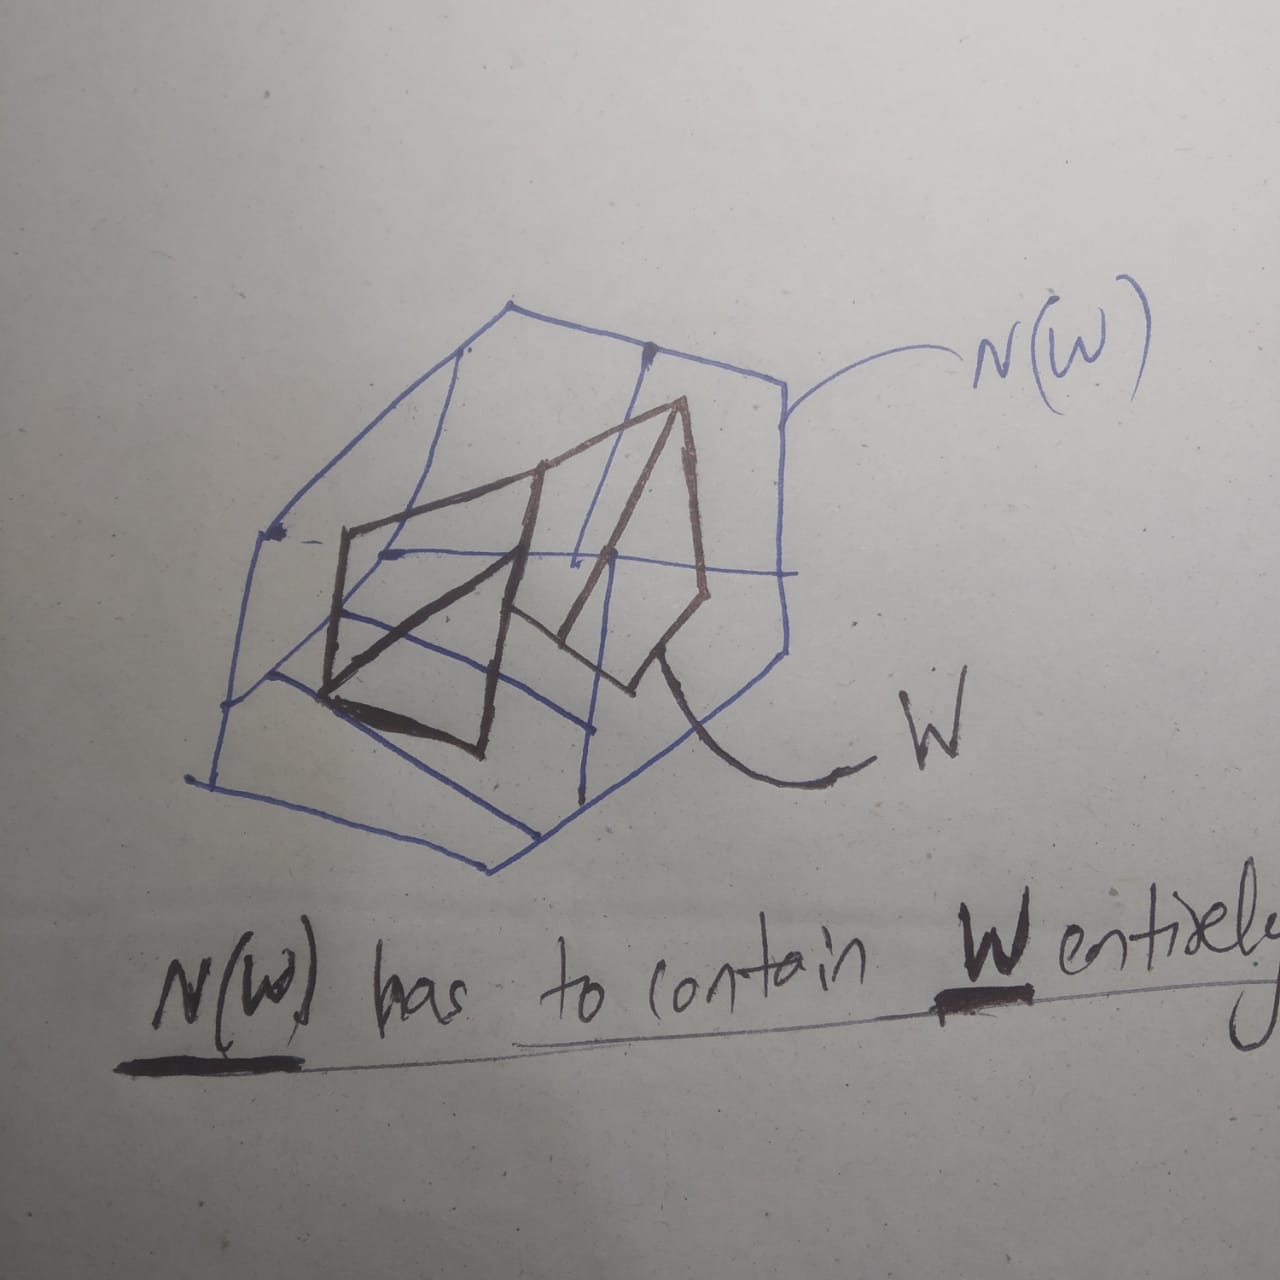 N(W)
W
N(W) has to contain W entirely